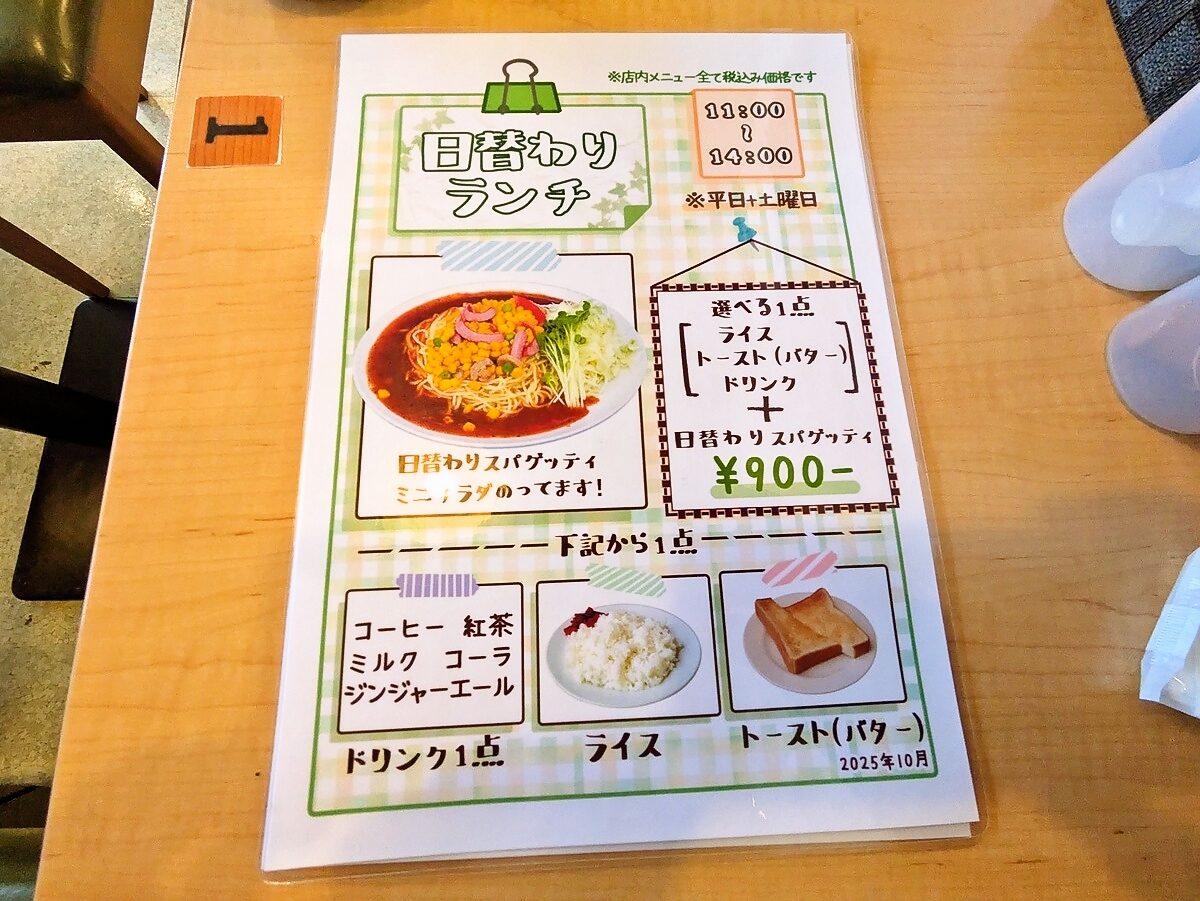 1
※店内メニュー全て税込み価格です
日替わり
ランチ
11:00
~
14:00
※平日+土曜日
選べる1点
ライス
トースト(バター)
ドリンク
+
日替わりスパゲッティ
¥900-
日替わりスパゲッティ
ミニサラダのってます!
下記から1点
コーヒー 紅茶
ミルク コーラ
ジンジャーエール
ドリンク1点
ライス
トースト(バター)
2025年10月